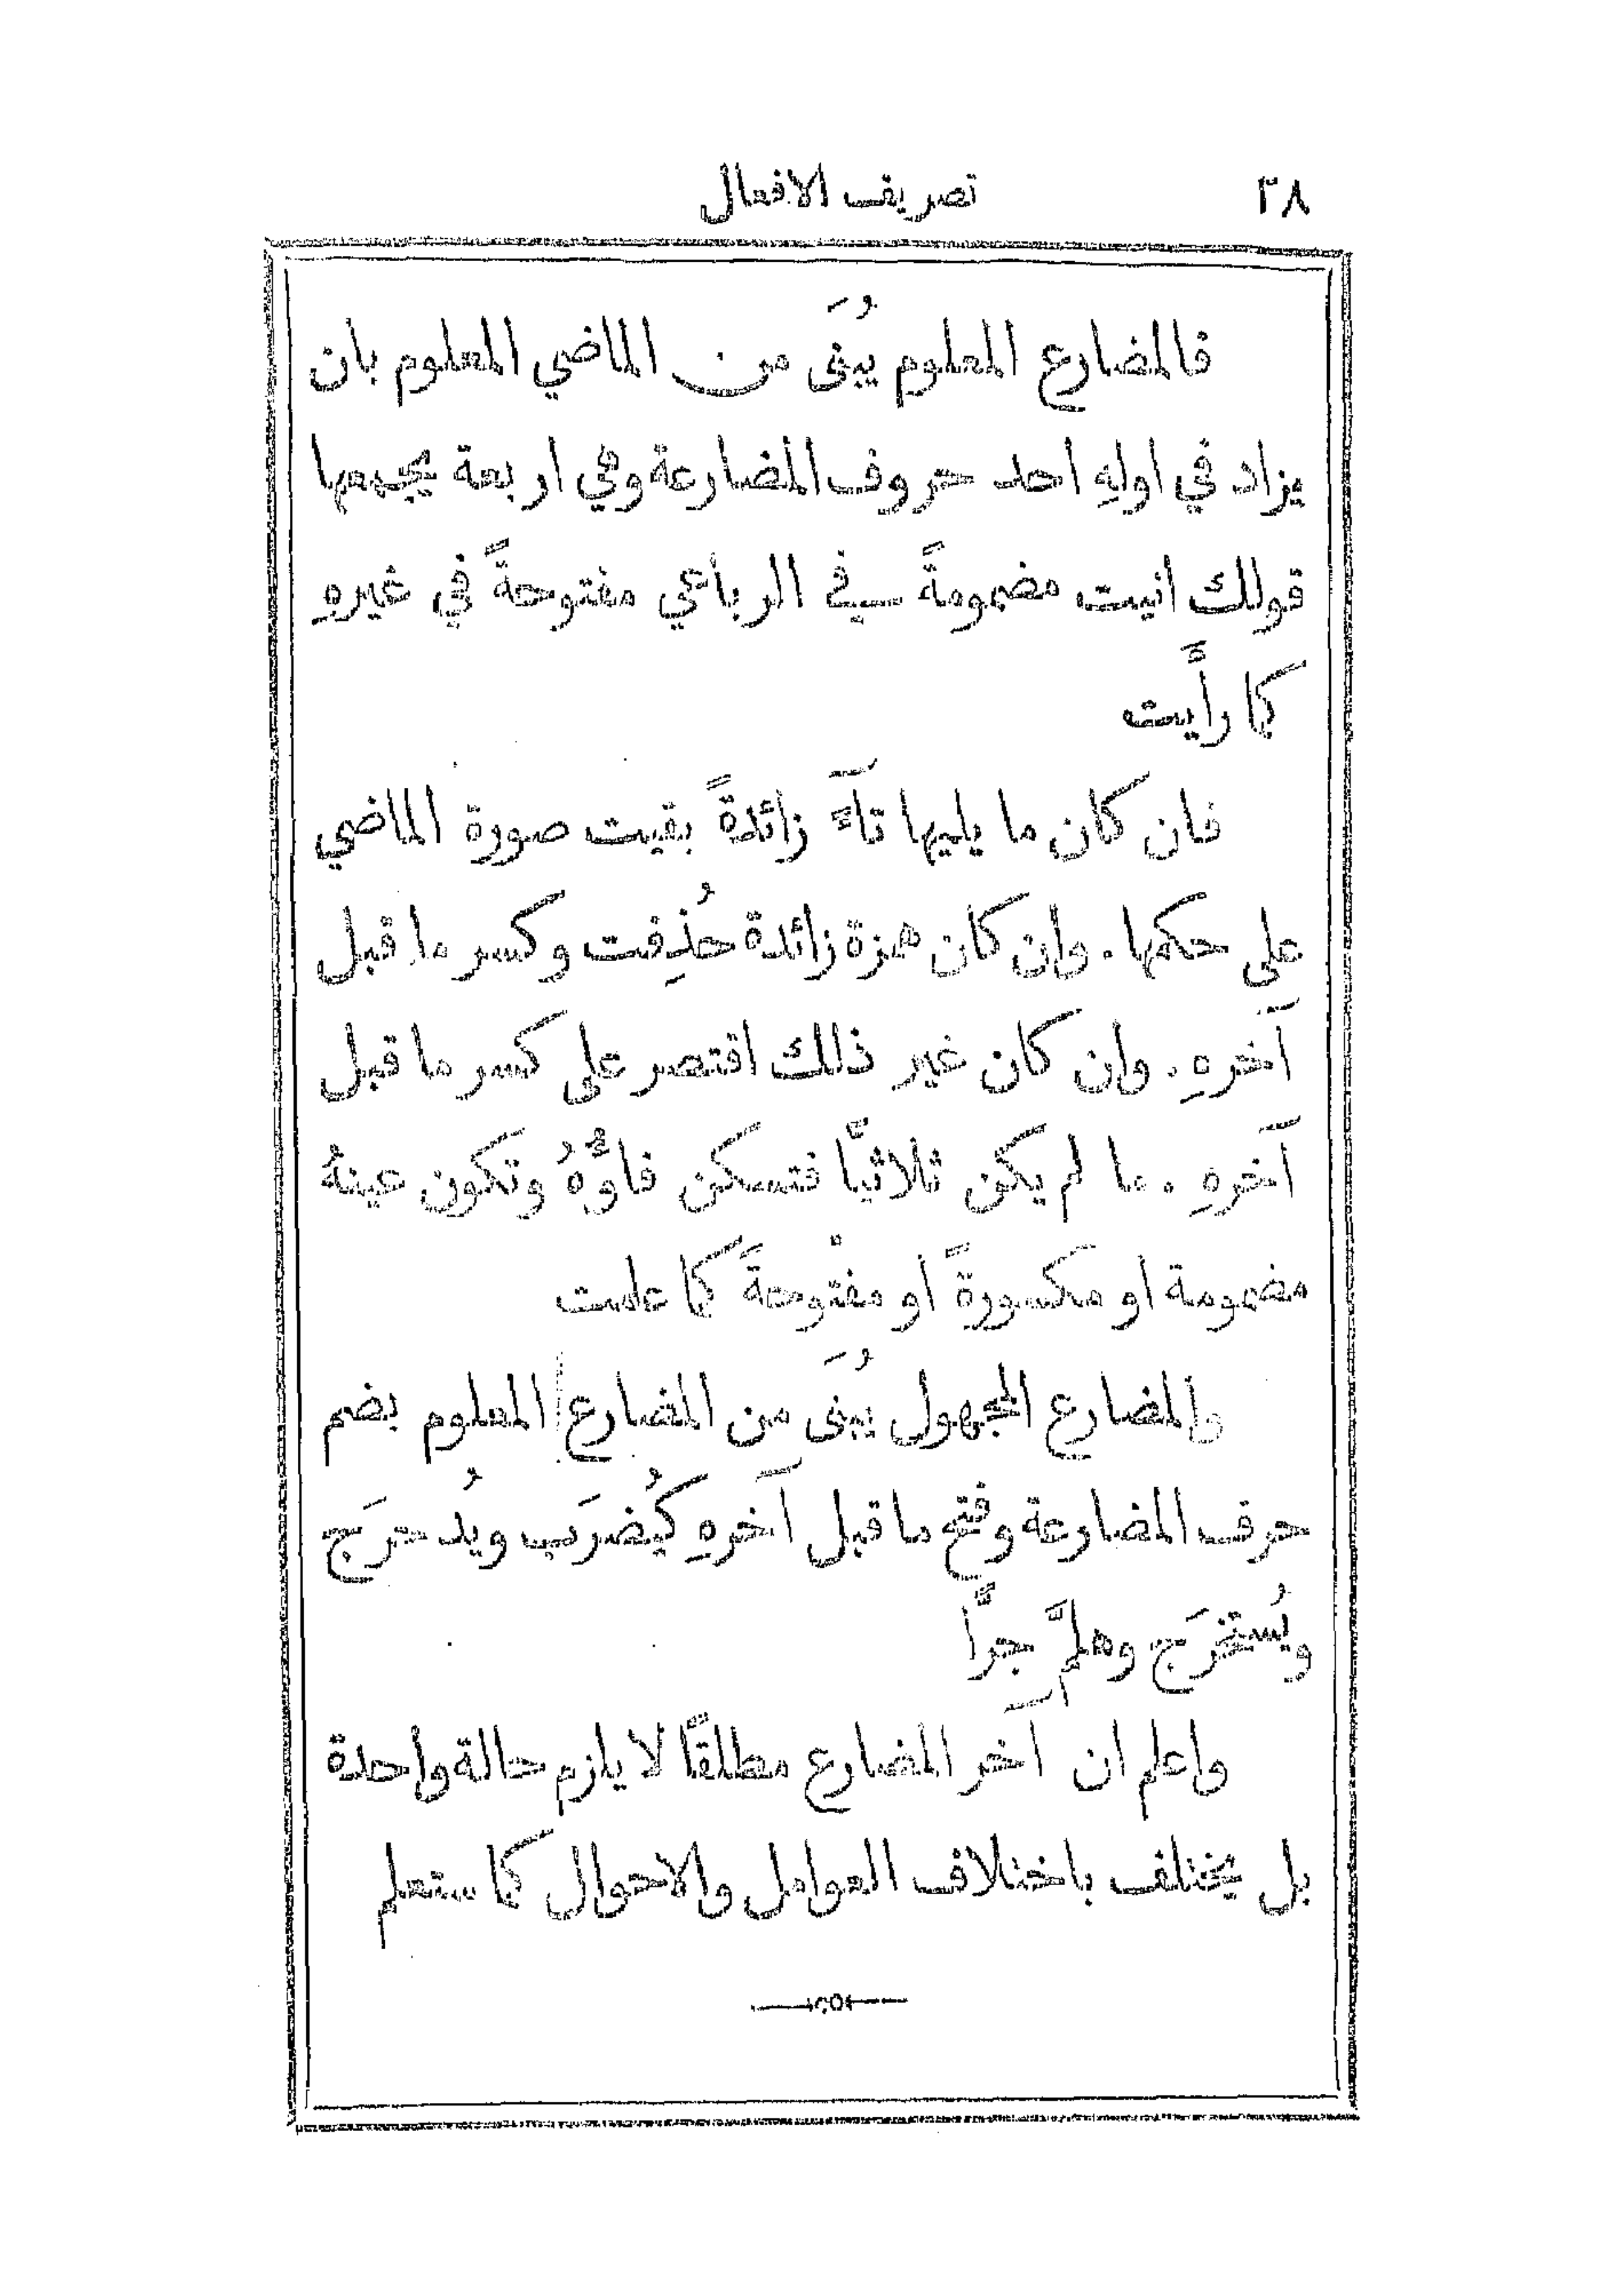 ٣٨ تصريف الافعال
فالمضارع المعلوم يُبنَى من الماضي المعلوم بان
يزاد في اولهِ احد حروف المضارعة وهي اربعة يجمعها
قولك انيت مضمومةً في الرباعي مفتوحةً في غيرهِ
كما رأَيت
فان كان ما يليها تآءً زائدةً بقيت صورة الماضي
على حكمها . وان كان همزة زائدة حُذِفت وكسر ما قبل
آخرهِ . وان كان غير ذلك اقتصر على كسر ما قبل
آخرهِ . ما لم يكن ثلاثيًّا فتسكن فاؤُهُ وتكون عينهُ
مضمومة او مكسورةً او مفتْوحةً كما علمت
والمضارع المجهول يُبنَى من المضارع المعلوم بضم
حرف المضارعة وفتح ما قبل آخرهِ كيُضرَب ويُدحرَج
ويُستخرَج وهلمَّ جرًّا
واعلم ان آخر المضارع مطلقًا لا يلزم حالة واحدة
بل يختلف باختلاف العوامل والاحوال كما ستعلم